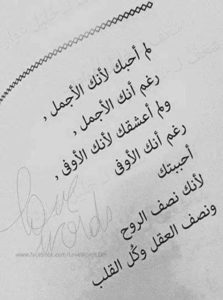 لم أحبك لأنك الأجمل ,
رغم أنك الأجمل ,
ولم أعشقك لأنك الأوفى ,
رغم أنك الأوفى
أحببتك
لأنك نصف الروح
ونصف العقل وكُل القلب
love
words